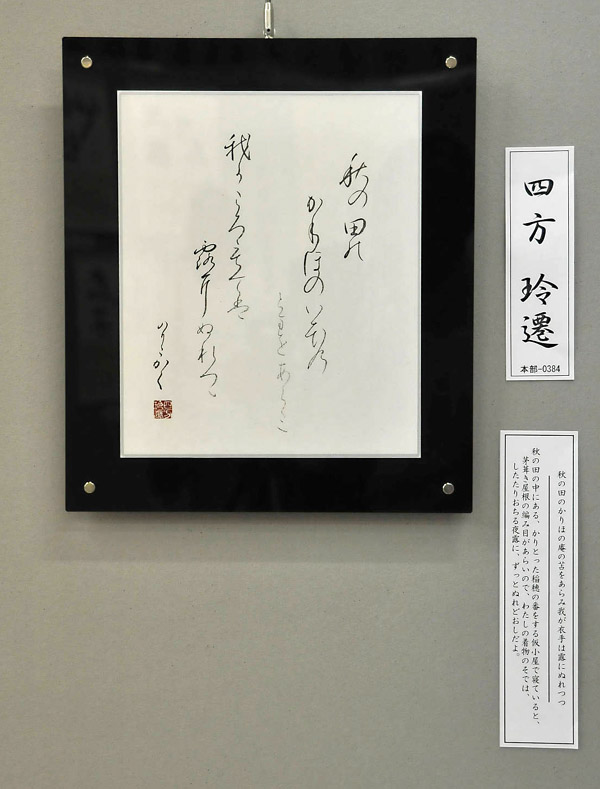 秋の田の
かりほのいほの
とまをあらみ
我かころもては
露耳ぬれつつ
四方 玲遷
本部-0384
秋の田のかりほの庵の苫をあらみ我が衣手は露にぬれつつ
秋の田の中にある、かりとった稲穂の番をする仮小屋で寝ていると、
茅葺き屋根の編み目があらいので、わたしの着物のそでは、
したたりおちる夜露に、ずっとぬれどおしだよ。